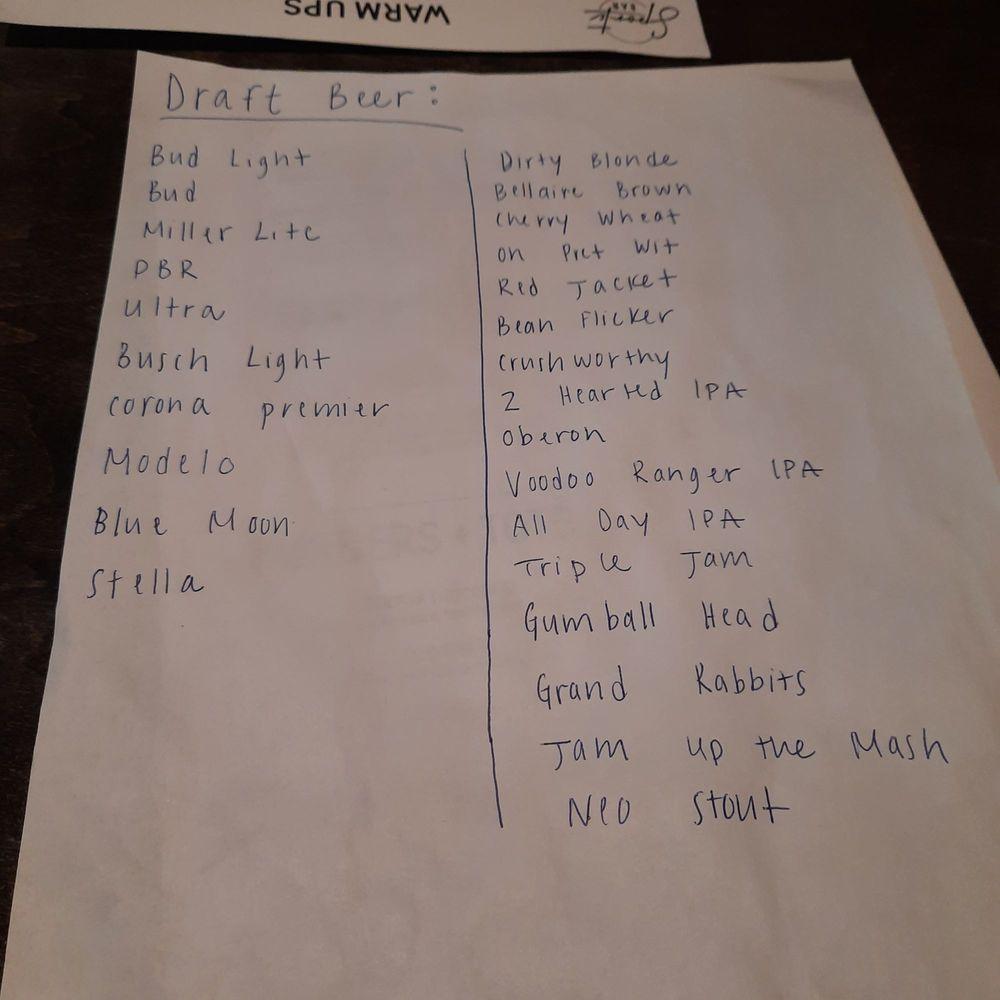 WARM UPS
Sports
BAR
Draft Beer:
Bud Light
Bud
Miller Lite
PBR
Ultra
Busch Light
Corona premier
Modelo
Blue Moon
Stella
Dirty Blonde
Bellaire Brown
Cherry Wheat
on Pret Wit
Red Jacket
Bean Flicker
Crushworthy
2 Hearted IPA
Oberon
Voodoo Ranger IPA
All Day IPA
Triple Jam
Gumball Head
Grand Rabbits
Jam up the Mash
Neo Stout